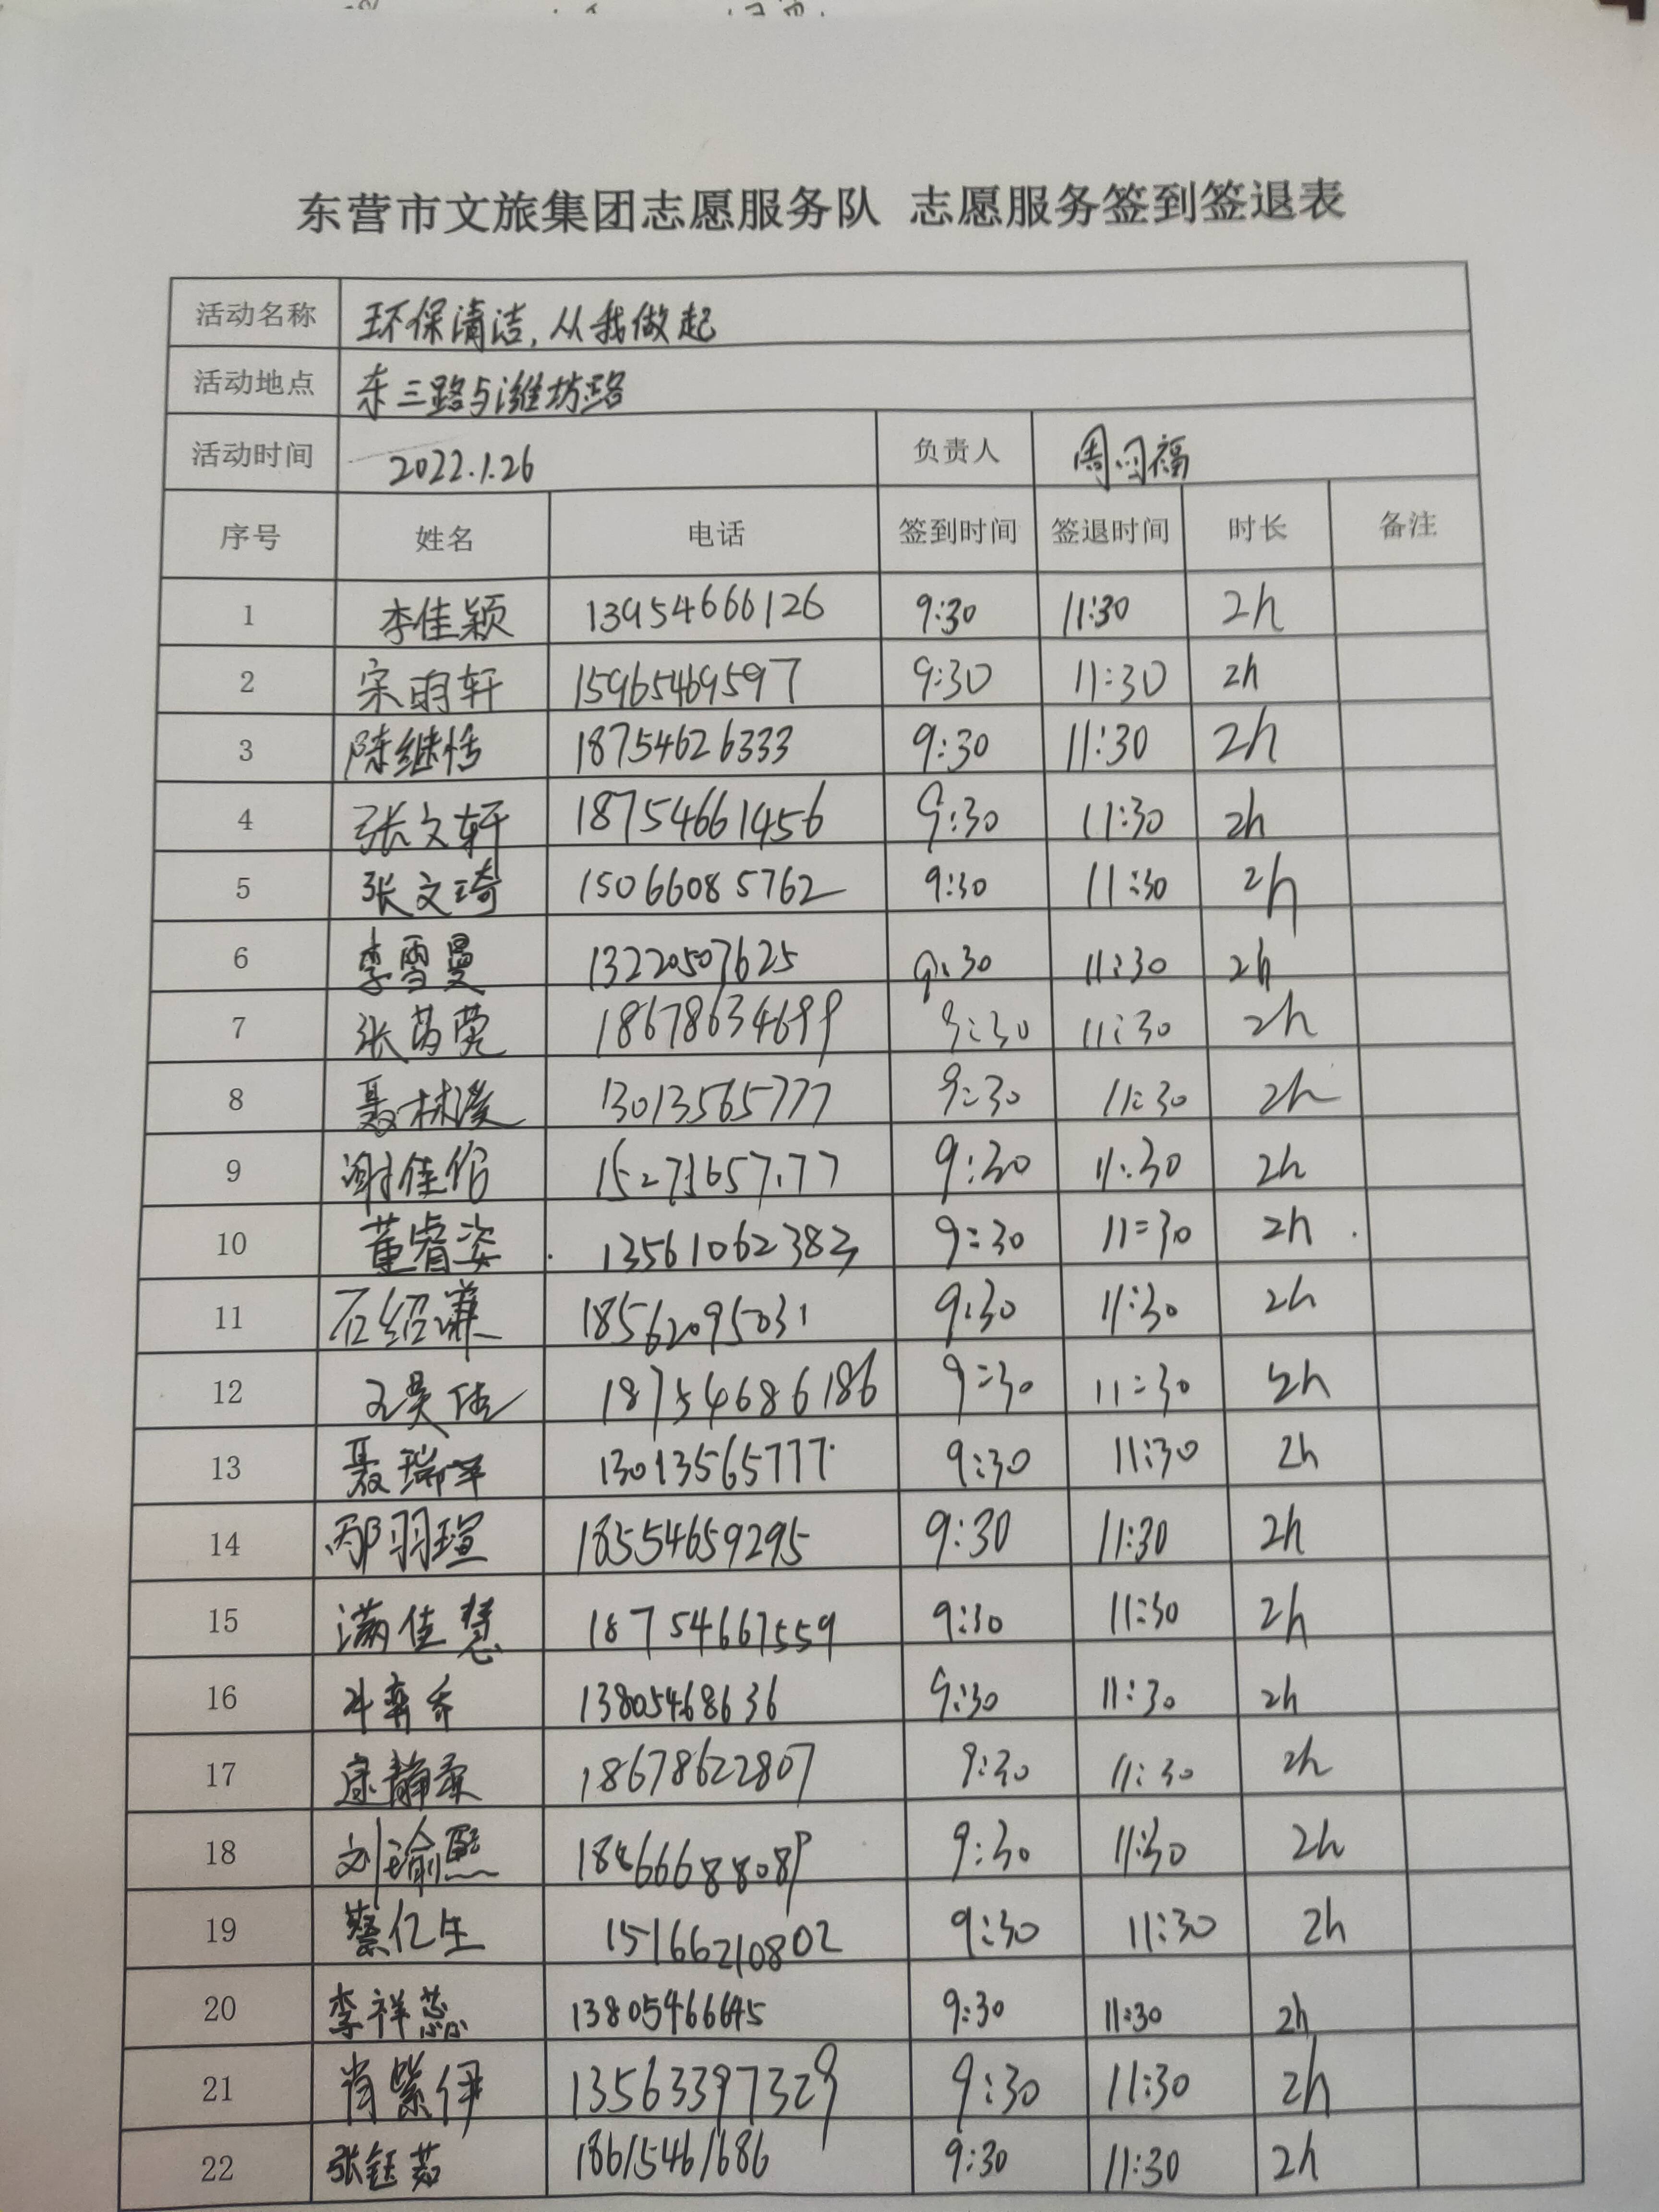 东营市文旅集团志愿服务队 志愿服务签到签退表
活动名称 环保清洁,从我做起
活动地点 东三路与潍坊路
活动时间 2022.1.26 负责人 周福
序号 姓名 电话 签到时间 签退时间 时长 备注
1 李佳颖 13954666126 9:30 11:30 2h
2 宋雨轩 15965469597 9:30 11:30 2h
3 陈继恬 18754626333 9:30 11:30 2h
4 张文轩 18754661456 9:30 11:30 2h
5 张文琦 15066085762 9:30 11:30 2h
6 李雪曼 13220507625 9:30 11:30 2h
7 张 18678634699 9:30 11:30 2h
8 聂林浚 13013565777 9:30 11:30 2h
9 谢佳 9:30 11:30 2h
10 董睿姿 13561062383 9:30 11:30 2h
11 石绍谦 18562095031 9:30 11:30 2h
12 18754686186 9:30 11:30 2h
13 聂瑞 13013565777 9:30 11:30 2h
14 邴羽瑄 18554659295 9:30 11:30 2h
15 满佳慧 18754667559 9:30 11:30 2h
16 13805468636 9:30 11:30 2h
17 静柔 18678622807 9:30 11:30 2h
18 刘瑜熙 18866688089 9:30 11:30 2h
19 蔡亿生 15166210802 9:30 11:30 2h
20 李祥蕊 13805466645 9:30 11:30 2h
21 肖紫伊 13563397329 9:30 11:30 2h
22 张钰茹 18615461686 9:30 11:30 2h